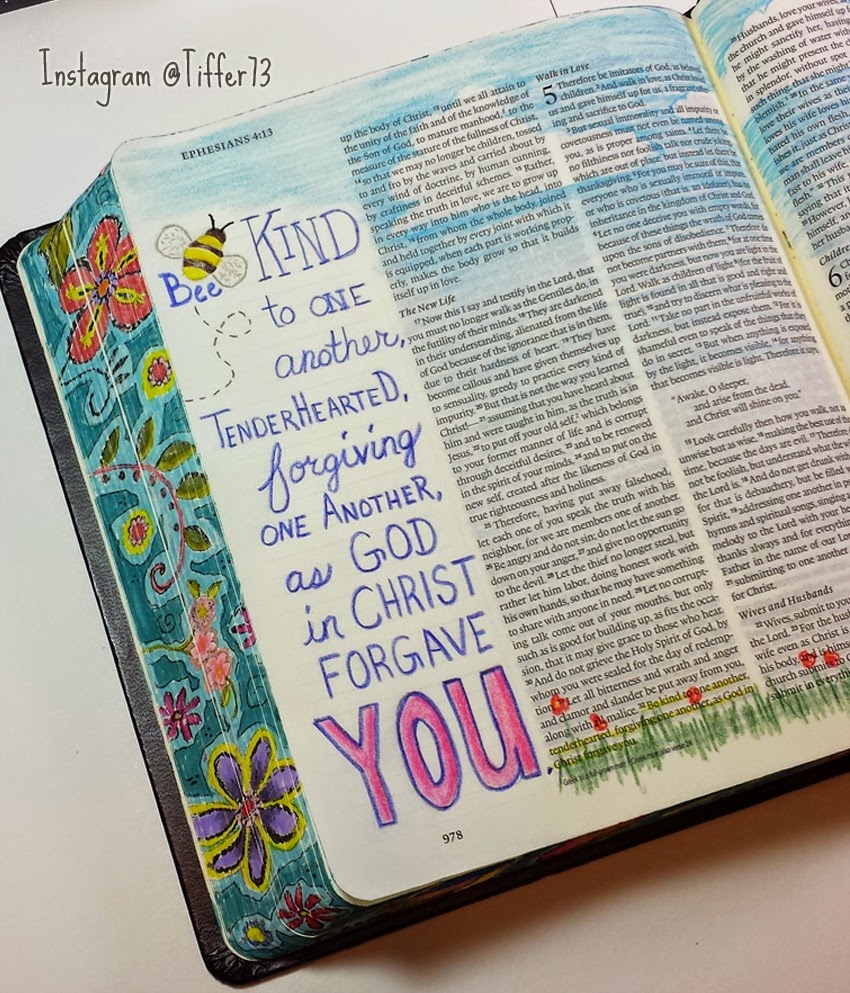 Instagram @Tiffer73
EPHESIANS 4:13
Bee KIND
to ONE
another,
TENDERHEARTED,
forgiving
ONE ANOTHER,
as GOD
in CHRIST
FORGAVE
YOU.
up the body of Christ, 13 until we all attain to
the unity of the faith and of the knowledge of
the Son of God, to mature manhood, to the
measure of the stature of the fullness of Christ,
14 so that we may no longer be children, tossed
to and fro by the waves and carried about by
every wind of doctrine, by human cunning,
by craftiness in deceitful schemes. 15 Rather,
speaking the truth in love, we are to grow up
in every way into him who is the head, into
Christ, 16 from whom the whole body, joined
and held together by every joint with which it
is equipped, when each part is working prop-
erly, makes the body grow so that it builds
itself up in love.
The New Life
17 Now this I say and testify in the Lord, that
you must no longer walk as the Gentiles do, in
the futility of their minds. 18 They are darkened
in their understanding, alienated from the life
of God because of the ignorance that is in them,
due to their hardness of heart. 19 They have
become callous and have given themselves up
to sensuality, greedy to practice every kind of
impurity. 20 But that is not the way you learned
Christ— 21 assuming that you have heard about
him and were taught in him, as the truth is in
Jesus, 22 to put off your old self, which belongs
to your former manner of life and is corrupt
through deceitful desires, 23 and to be renewed
in the spirit of your minds, 24 and to put on the
new self, created after the likeness of God in
true righteousness and holiness.
25 Therefore, having put away falsehood,
let each one of you speak the truth with his
neighbor, for we are members one of another.
26 Be angry and do not sin; do not let the sun go
down on your anger, 27 and give no opportunity
to the devil. 28 Let the thief no longer steal, but
rather let him labor, doing honest work with
his own hands, so that he may have something
to share with anyone in need. 29 Let no corrupt-
ing talk come out of your mouths, but only
such as is good for building up, as fits the occa-
sion, that it may give grace to those who hear.
30 And do not grieve the Holy Spirit of God, by
whom you were sealed for the day of redemp-
tion. 31 Let all bitterness and wrath and anger
and clamor and slander be put away from you,
along with all malice. 32 Be kind to one another,
tenderhearted, forgiving one another, as God in
Christ forgave you.
Walk in Love
5 Therefore be imitators of God, as beloved
children. 2 And walk in love, as Christ loved
us and gave himself up for us, a fragrant
ing and sacrifice to God.
3 But sexual immorality and all impurity or
covetousness must not even be named among
you, as is proper among saints. 4 Let there be
no filthiness nor foolish talk nor crude joking,
which are out of place, but instead let there be
thanksgiving. 5 For you may be sure of this, that
everyone who is sexually immoral or impure,
or who is covetous (that is, an idolater), has no
inheritance in the kingdom of Christ and God.
6 Let no one deceive you with empty words, for
because of these things the wrath of God comes
upon the sons of disobedience. 7 Therefore do
not become partners with them; 8 for at one time
you were darkness, but now you are light in the
Lord. Walk as children of light 9 (for the fruit of
light is found in all that is good and right and
true), 10 and try to discern what is pleasing to the
Lord. 11 Take no part in the unfruitful works of
darkness, but instead expose them. 12 For it is
shameful even to speak of the things that they
do in secret. 13 But when anything is exposed
by the light, it becomes visible, 14 for anything
that becomes visible is light. Therefore it says,
“Awake, O sleeper,
and arise from the dead,
and Christ will shine on you.”
15 Look carefully then how you walk, not as
unwise but as wise, 16 making the best use of the
time, because the days are evil. 17 Therefore do
not be foolish, but understand what the will of
the Lord is. 18 And do not get drunk with
for that is debauchery, but be filled with
Spirit, 19 addressing one another in
hymns and spiritual songs, singing
melody to the Lord with your
thanks always and for everything
Father in the name of our Lord
21 submitting to one another
for Christ.
Wives and Husbands
22 Wives, submit to your
the Lord. 23 For the husband
wife even as Christ is
his body, and is
church submits
submit in everything
978
25 Husbands, love your wives, as
the church and gave himself up
he might sanctify her, having
by the washing of water with
that he might present the
in splendor, without spot
such thing, that she might
blemish. 28 In the same
love their wives as their
loves his wife loves
hated his own flesh,
Children
6